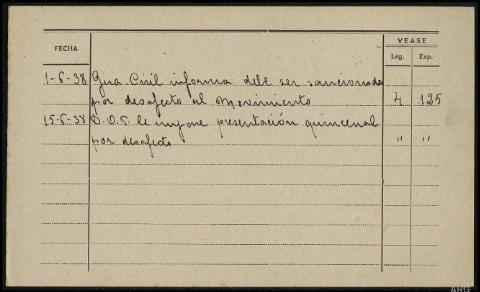 VEASE
FECHA Leg. Exp.
1-6-38 Gua. Civil informa debe ser sancionado
por desafecto al Movimiento 4 125
15-6-38 le impone presentación quincenal
por desafecto " "
ARG